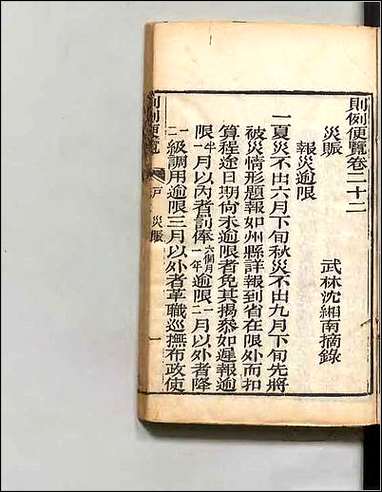 則例便覽卷二十二
災賑
武林沈緗南摘錄
報災逾限
一夏災不出六月下旬秋災不出九月下旬先將
被災情形題報如州縣詳報到省在限外而扣
算程途日期尚未逾限者免其揭參如遲報逾
限半一月以內者罰俸六個月一年逾限一月以外者降
一二級調用逾限三月以外者革職巡撫布政使
則例便覽 戶 災賑 一